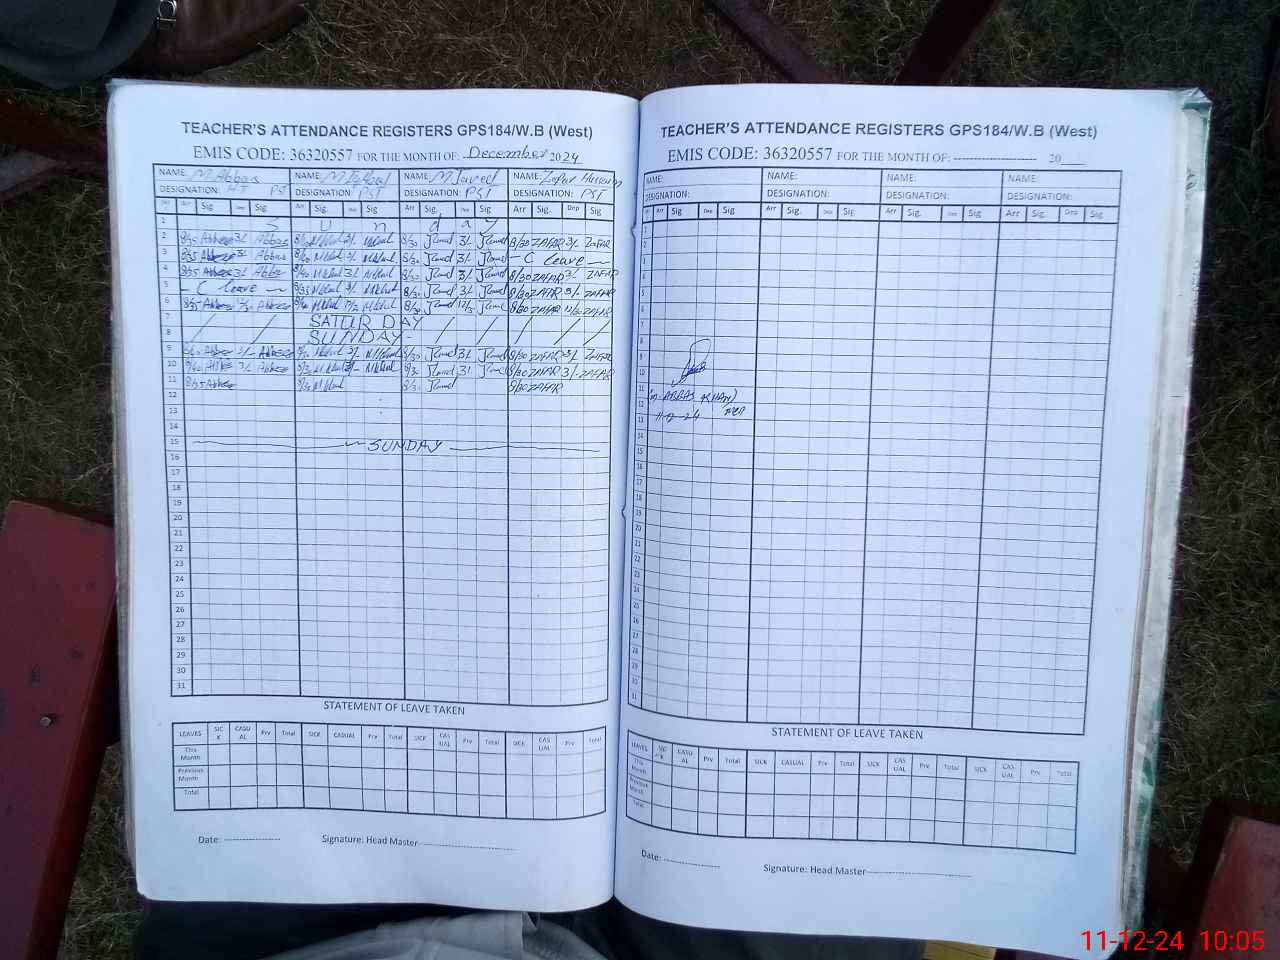 TEACHER'S ATTENDANCE REGISTERS GPS184/W.B (West)
EMIS CODE: 36320557 FOR THE MONTH OF: December 2024
NAME: M Abbas NAME: M NAME: M Javed NAME: Zafar Hussain
DESIGNATION: HT PST DESIGNATION: PST DESIGNATION: PST DESIGNATION: PST
Arr Sig Dep Sig Arr Sig. Dep Sig Arr Sig. Dep Sig Arr Sig. Dep Sig
1 S u n d a y
2 8/35 Abbas 3/- Abbas 3/- 8/30 Javed 3/- Javed 8/30 ZAFAR 3/- ZAFAR
3 8/35 Abbas 3/- Abbas 3/- 8/30 Javed 3/- Javed - C leave -
4 8/35 Abbas 3/- Abbas 3/- 8/30 Javed 3/- Javed 8/30 ZAFAR 3/- ZAFAR
5 - C leave - 8/35 3/- 8/30 Javed 3/- Javed 8/30 ZAFAR 3/- ZAFAR
6 8/35 Abbas Abbas 8/30 Javed Javed 8/30 ZAFAR ZAFAR
7 / / / SATUR DAY / / / /
8 SUNDAY -
9 Abbas 3/- Abbas 3/- 8/30 Javed 3/- Javed 8/30 ZAFAR 3/- ZAFAR
10 8/40 Abbas 3/- Abbas 3/- 8/30 Javed 3/- Javed 8/30 ZAFAR 3/- ZAFAR
11 8/35 Abbas 8/30 Javed 8/30 ZAFAR
12
13
14
15 SUNDAY
16
17
18
19
20
21
22
23
24
25
26
27
28
29
30
31
STATEMENT OF LEAVE TAKEN
LEAVES SICK CASUAL Prv Total SICK CASUAL Prv Total SICK CASUAL Prv Total SICK CASUAL Prv Total
This Month
Previous Month
Total
Date: ------------------ Signature: Head Master------------------------------
TEACHER'S ATTENDANCE REGISTERS GPS184/W.B (West)
EMIS CODE: 36320557 FOR THE MONTH OF: ---------------------- 20____
NAME: NAME: NAME: NAME:
DESIGNATION: DESIGNATION: DESIGNATION: DESIGNATION:
Arr Sig Dep Sig Arr Sig. Dep Sig Arr Sig. Dep Sig Arr Sig. Dep Sig
1
2
3
4
5
6
7
8
9
10
11
12 (M. ABBAS KHAN)
13
14
15
16
17
18
19
20
21
22
23
24
25
26
27
28
29
30
31
STATEMENT OF LEAVE TAKEN
LEAVES SICK CASUAL Prv Total SICK CASUAL Prv Total SICK CASUAL Prv Total SICK CASUAL Prv Total
This Month
Previous Month
Total
Date: ------------------ Signature: Head Master------------------------------
11-12-24 10:05